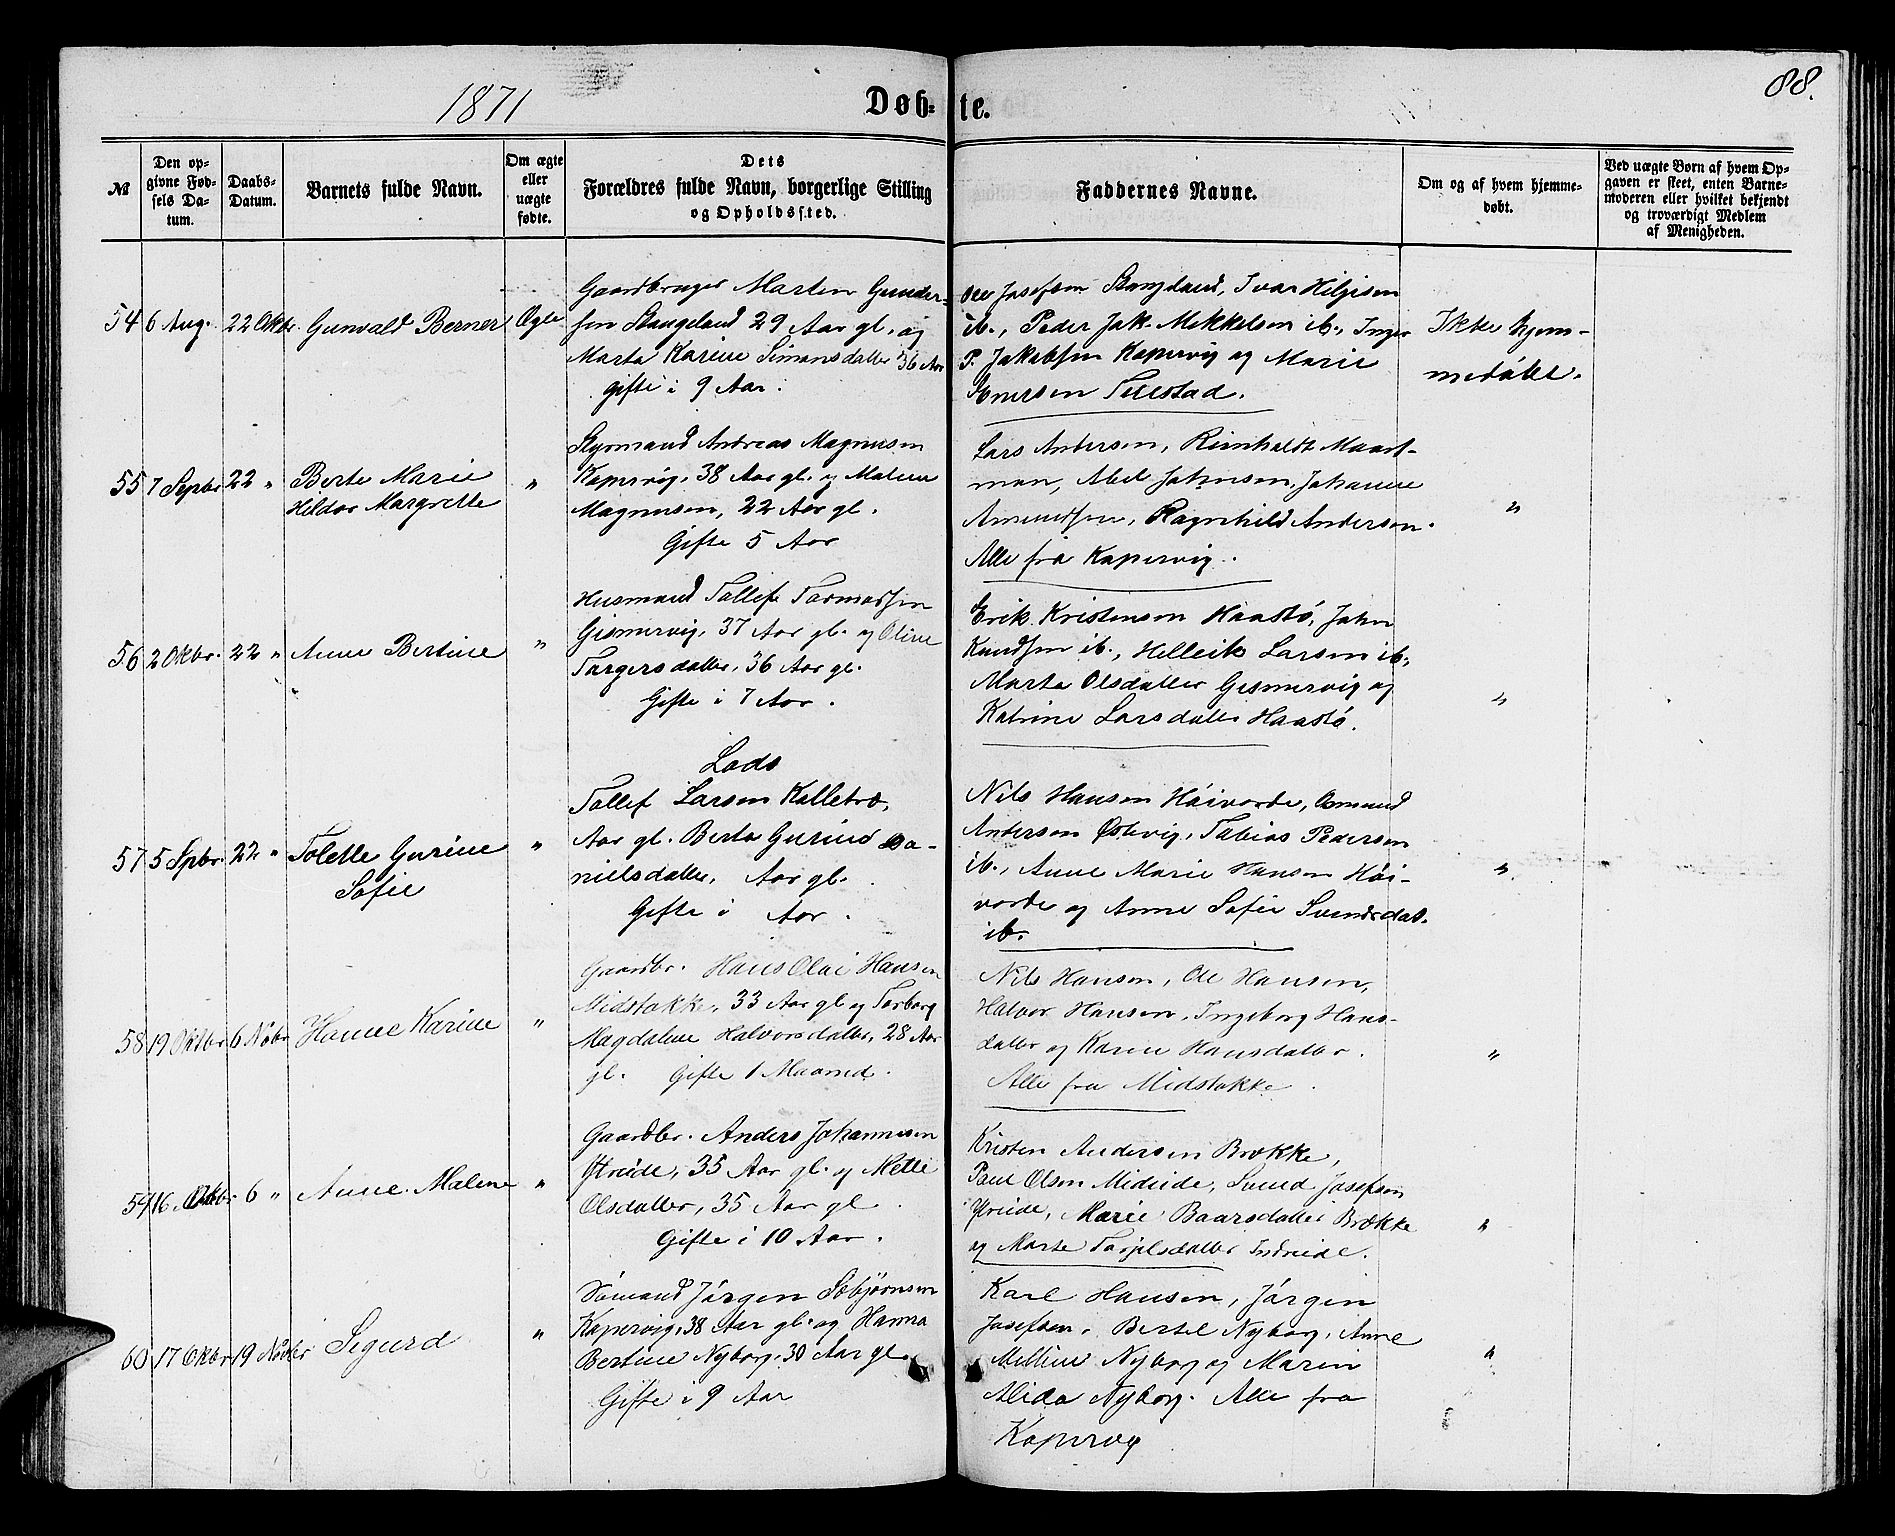 1871
Døb-
te.
88.
№
Den op-
givne Fød-
sels Da-
tum.
Daabs-
Datum.
Barnets fulde Navn.
Om ægte
eller
uægte
fødte.
Dets
Forældres fulde Navn, borgerlige Stilling
og Opholdssted.
Faddernes Navne.
Om og af hvem hjemme-
døbt.
Ved uægte Børn af hvem Op-
gaven er skeet, enten Barne-
moderen eller hvilket bekjendt
og troværdigt Medlem
af Menigheden.
54 6 Aug. 22 Oktr. Gunvald Berner Ægte
Gaardbruger Marten Gunder-
sen Stangeland 29 Aar gl. og
Marta Karine Simonsdatter 36 Aar
gifte i 9 Aar.
Josefsen Stangeland, Ivar Helgesen
ib., Peder Jak. Mekkelsen ib., Inger
P. Jakobsen Kopervig og Marie
Ikke hjem-
medøbt.
55 7 Sepbr 22 " Berte Marie
Hilda Margrette
"
Styrmand Andreas Magnusen
Kopervig, 38 Aar gl. og Malene
Magnusen, 22 Aar gl.
Gifte 5 Aar
Lars Andersen, Reinholdt Maart-
man, Abel Johnsen, Johanne
Amundsen, Ragnhild Andersen.
Alle fra Kopervig.
"
56 2 Okbr. 22 " Anne Bertine "
Husmand Tollef Tormodsen
Gismervig, 37 Aar gl. og Oline
Torgersdatter, 36 Aar gl.
Gifte i 7 Aar.
Erik Kristensen Haastø, John
Knudsen ib., Helleik Larsen ib.,
Marta Olsdatter Gismervig og
Katrine Larsdatter Haastø.
"
57 5 Spbr. 22 " Tolette Gurine
Sofie
"
Lods
Tollef Larsen Kolletvø,
Aar gl. Berta Gurine Da-
nielsdatter, Aar gl.
Gifte i Aar.
Nils Hansen Høivarde, Osmund
Andersen Østevig, Tobias Pedersen
ib., Anne Marie Hansen Høi-
varde og Anne Sofie Svendsdat.
ib.
"
58 19 Oktbr 6 Nóbr Hanne Karine "
Gaardbr. Hans Olai Hansen
Midstokke, 33 Aar gl og Torborg
Magdalene Halvorsdatter, 28 Aar
gl. Gifte 1 Maaned.
Nils Hansen, Ole Hansen,
Halvor Hansen, Ingeborg Hans-
datter og Karen Hansdatter.
Alle fra Midstokke.
"
59 16 Okbr 6 " Anne Malene "
Gaardbr. Anders Johannesen
Ytreide, 35 Aar gl. og Mette
Olsdatter, 35 Aar gl.
Gifte i 10 Aar.
Kristen Andersen Brække,
Paul Olsen Mideide, Svend Josefsen
Ytreide, Marie Baarsdatter Brække
og Marte Torjelsdatter Indreide.
"
60 17 Okbr 19 Nóvbr Sigurd "
Sømand Jørgen Sebjørnsen
Kopervig, 38 Aar gl. og Hanna
Bertine Nyborg, 30 Aar gl.
Gifte i 9 Aar
Karl Hansen, Jørgen
Josefsen, Bertel Nyborg, Anne
Melline Nyborg og Maren
Alida Nyborg. Alle fra
Kopervig
"